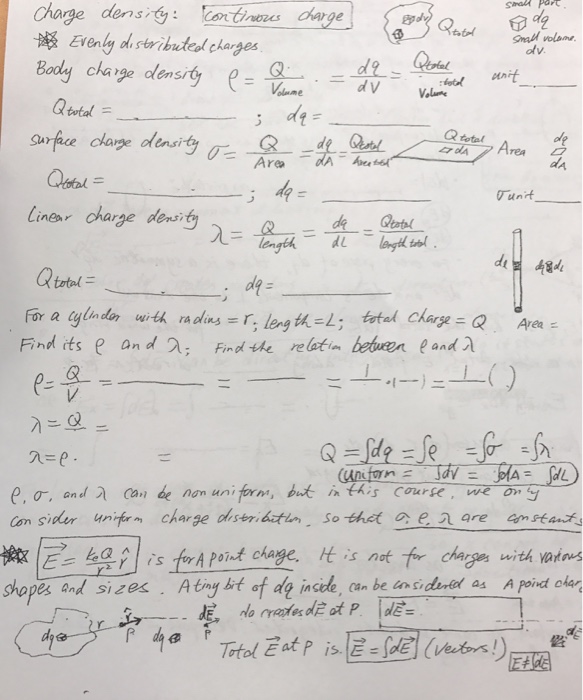 small part.
Charge density: Continuous charge
Q total
dq
small volume.
dv.
Evenly distributed charges.
Body charge density ρ = Q / Volume . = dq / dV = Qtotal / total Volume unit ____
Q total = ____ ; dq = ____
Surface charge density σ = Q / Area = dq / dA = Qtotal / Area total
Q total
dA
Area
dq
dA
Qtotal = ____ ; dq = ____ σ unit ____
Linear charge density λ = Q / length = dq / dL = Qtotal / length total.
dl
Q total = ____ ; dq = ____
For a cylinder with radius = r; length = L; total charge = Q Area =
Find its ρ and λ; Find the relation between ρ and λ
ρ = Q / V = ____ = ____ = 1/ · (—) = 1/ ( )
λ = Q / =
λ = ρ · =
Q = ∫dq = ∫ρ = ∫σ = ∫λ
(uniform = ∫dV = ∫dA = ∫dL)
ρ, σ, and λ can be nonuniform, but in this course, we only
consider uniform charge distribution, so that σ, ρ, λ are constants
E⃗ = keQ / r² r̂ is for A point charge. It is not for charges with various
shapes and sizes. A tiny bit of dq inside, can be considered as A point char
dq r r̂ P dq dE⃗ P
dq creates dE⃗ at P. dE⃗ =
dE
Total E⃗ at P is. E⃗ = ∫dE⃗ (vectors!) E ≠ ∫dE